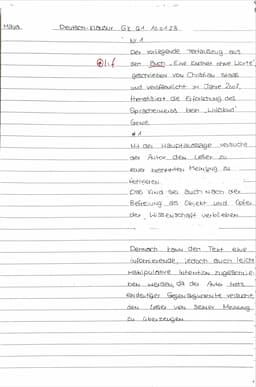 Maya Deutsch-Klausur GK Q1 10.01.23
Nr.1
Der vorliegende Textauszug aus
dem Buch „Eine Kindheit ohne Worte",
geschrieben von Christian
und veröffentlicht im Jahre 2001,
thematisiert die Erforschung des
Spracherwerbs beim „Wildkind"
Genie.
#1
Mit der Hauptaussage versucht
der Autor den Leser zu
einer bestimmten Meinung zu
Das Kind sei auch nach der
Befreiung als Objekt und Opfer
der Wissenschaft verblieben.
Demnach kann dem Text eine
informierende, jedoch auch leicht
manipulative Intention zugeschrie-
ben werden, da der Autor trotz
eindeutiger Gegenargumente versucht,
den Leser von seiner Meinung
zu überzeugen.